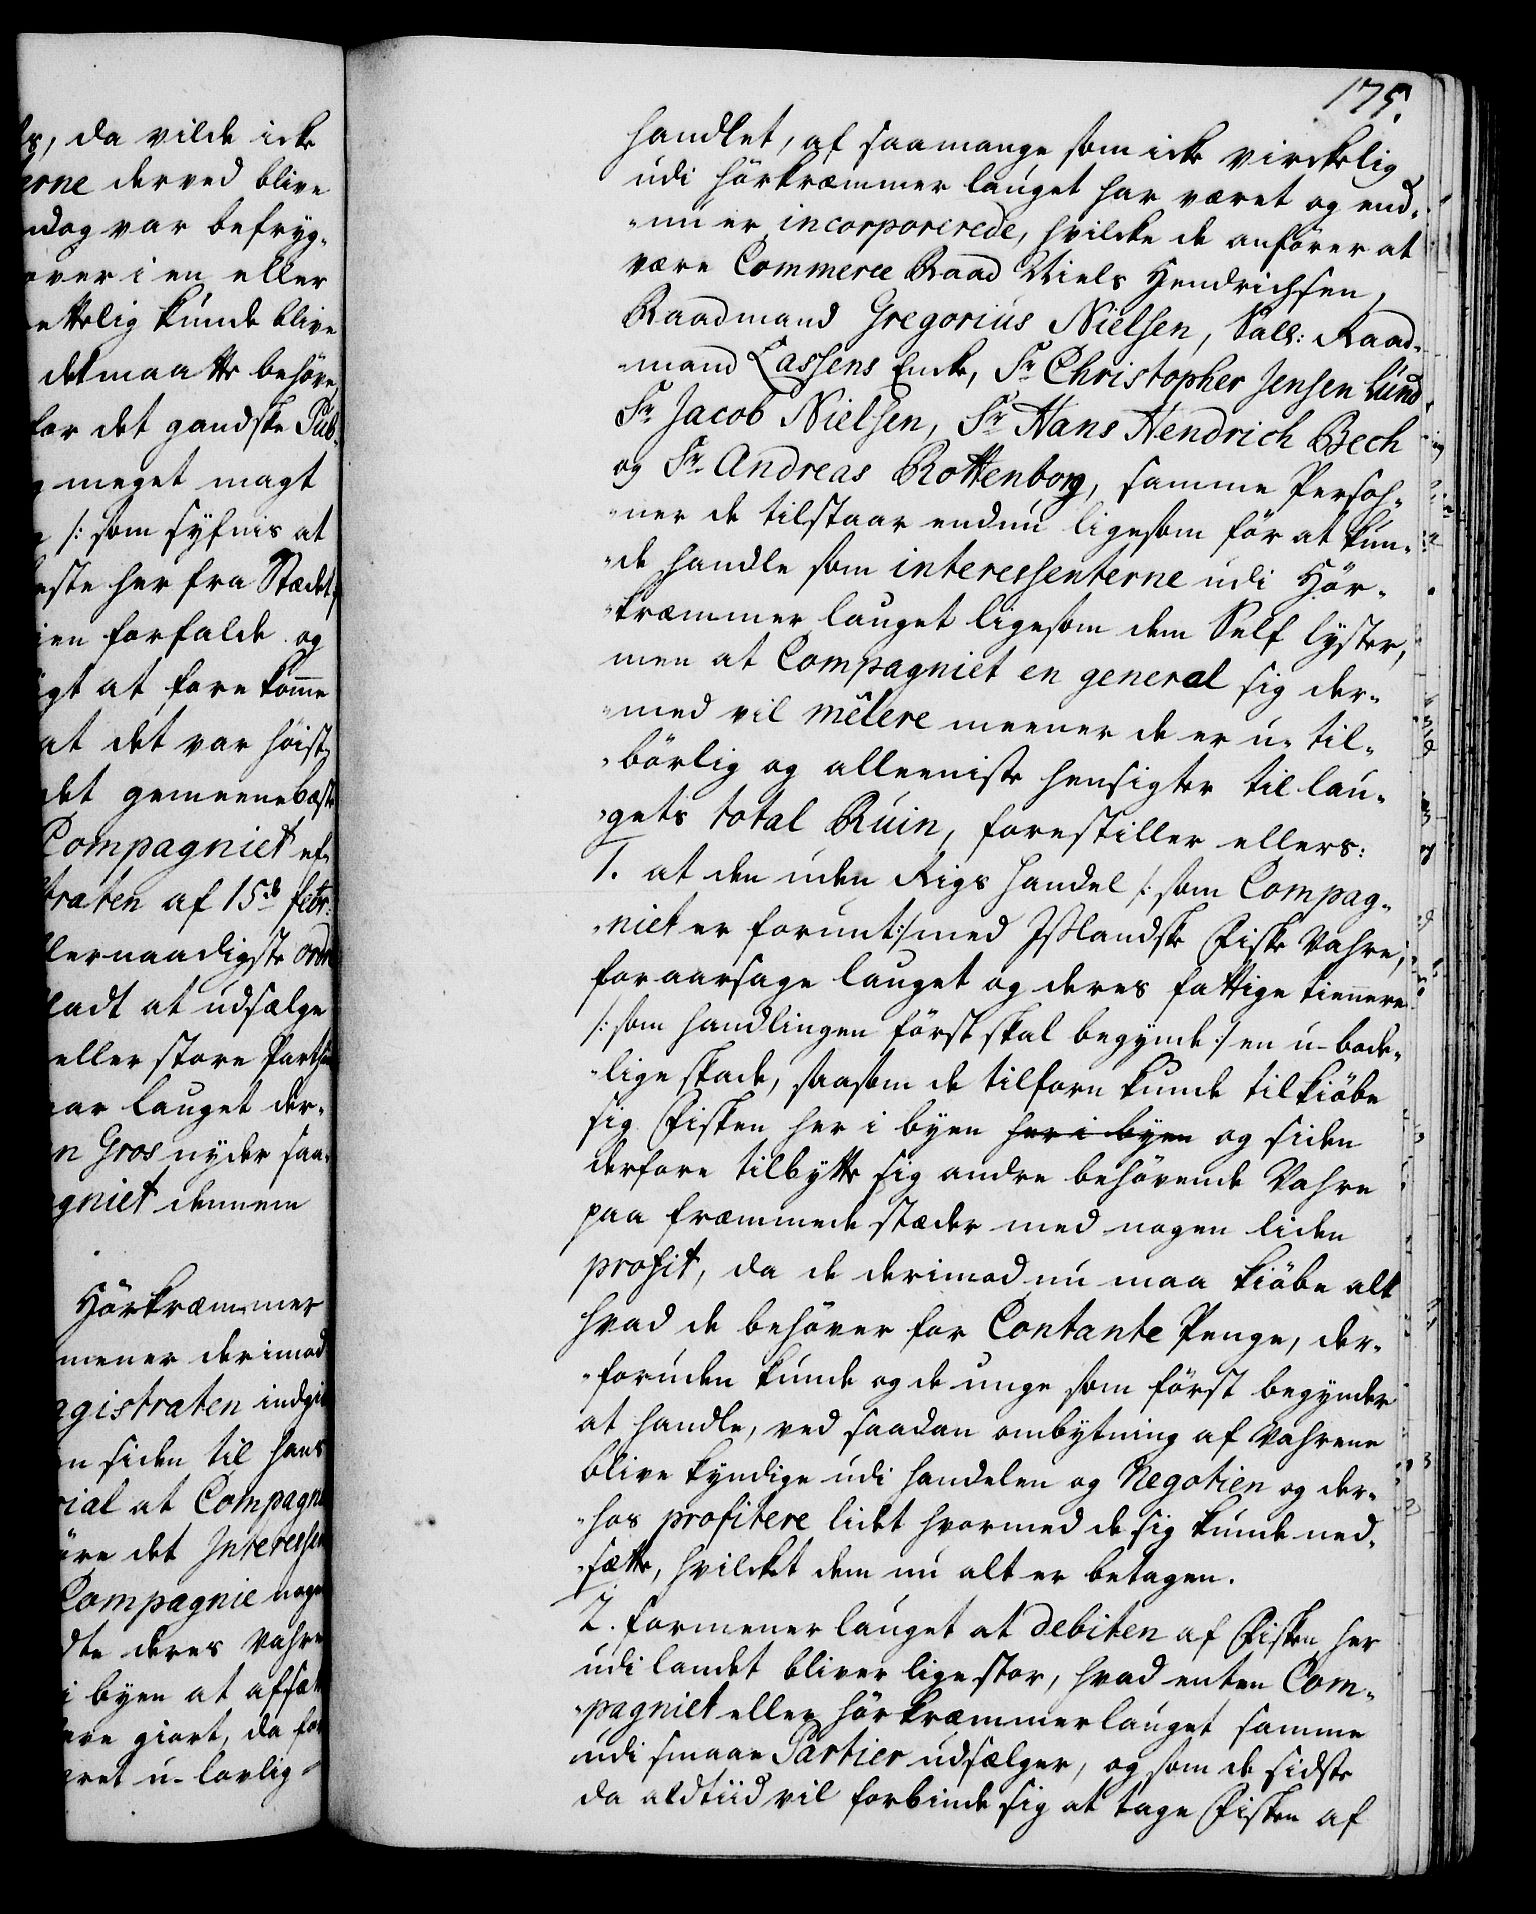 ls, da vilde icke
erne derved blive
ndog var befryg-
over i en eller
ettelig kunde blive
det maatte behöve,
for det gandske Pub-
meget magt
/: som syfnis at
este her fra Stædet,
ien forfalde og
igt at fore komme
at det var höist
det gemeene bæste
Compagniet ef-
traten af 15de febr:
lernaadigste ordre
ladt at udsælge
eller store Parti
var lauget der-
n Gros nyder saa-
gniet dennem
Hörkræmmer
mener derimod
agistraten indgi
n siden til hans
rial at Compagni
öre det Interessen
Compagnie noge
dte deres Vahre
i byen at afsætt
ere giort, da for
eret u-lovlig
175.
handlet, af saamange som icke virckelig
udi hörkræmmer lauget har været og end-
-nu er incorporerede, hvilcke de anförer at
være Commerce Raad Niels Hendrichsen,
Raadmand Gregorius Nielsen, Sall: Raad-
-mand Lassens Encke, Sr Christopher Jensen Lund
Sr Jacob Nielsen, Sr Hans Hendrich Bech
og Sr Andreas Rottenborg, samme Persoh-
-ner de tilstaar endnu ligesom för at kun-
-de handle som interessenterne udi Hör-
-kræmmer lauget ligesom dem Self lyster,
men at Compagniet en general sig der-
-med vil mêlere meener de er u-til-
-börlig og alleeniste hensigter til lau-
-gets total Ruin, forestiller ellers:
1. at den uden Rigs handel /: som Compag-
-niet er forunt :/ med Isslandske Fiske Vahre,
foraarsage lauget og deres fattige tiennere
/: som handlingen först skal begynde :/ en u-bode-
-lige skade, saasom de tilforn kunde tilkiöbe
sig Fisken her i byen her i byen og siden
derfore tilbytte sig andre behövende Vahre
paa fræmmede stæder med nogen liden
profit, da de derimod nu maa kiöbe alt
hvad de behöver for Contante Penge, der-
-foruden kunde og de unge som först begynder
at handle, ved saadan ombytning af Vahrene
blive kyndige udi handelen og Negotien og der-
-hos profitere lidet hvormed de sig kunde ned-
-sætte, hvilcket dem nu alt er betagen.
2. formener lauget at debiten af Fisken her
udi landet bliver lige stor, hvad enten Com-
-pagniet eller hörkræmmerlauget samme
udi smaae Partier udsælger, og som de sidste
da aldtiid vil forbinde sig at tage Fisken af